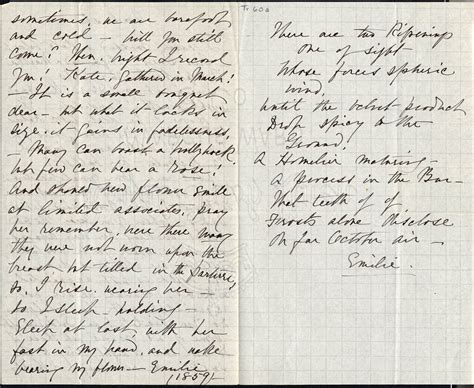 sometimes, we are barefoot
and cold - will you still
come? Then, bright I record
you! Kate, gathered in March!
- It is a small bouquet
dear - but what it lacks in
size, it gains in fadelessness,
- Many can boast a hollyhock,
but few can bear a rose!
And should new flower smile
at limited associates, pray
her remember, were there many
they were not worn upon the
breast but tilled in the pasture!
So, I rise, wearing her -
so I sleep, holding -
Sleep at last, with her
fast in my hand, and wake
bearing my flower - Emilie
(1859)
Tr 60a
There are two Ripenings
one of sight
Whose forces spheric
wind,
Until the velvet product
Drop spicy to the
Ground.
A Homelier maturing -
A process in the Bur -
That teeth of
Frosts alone disclose
On far October air -
Emilie.